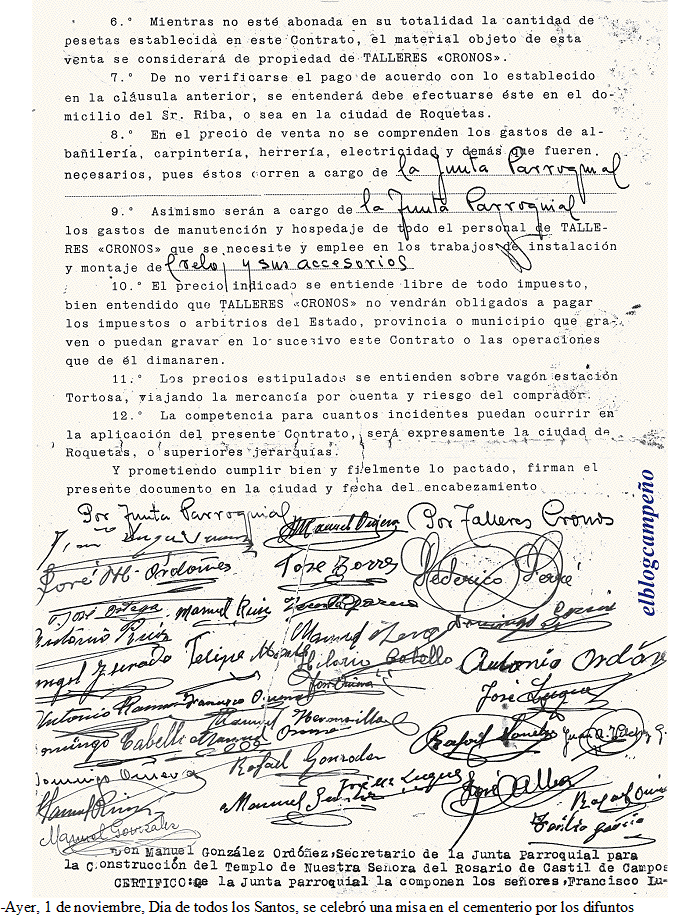 6.° Mientras no esté abonada en su totalidad la cantidad de
pesetas establecida en este Contrato, el material objeto de esta
venta se considerará de propiedad de TALLERES «CRONOS».
7.° De no verificarse el pago de acuerdo con lo establecido
en la cláusula anterior, se entenderá debe efectuarse éste en el do-
micilio del Sr. Riba, o sea en la ciudad de Roquetas.
8.° En el precio de venta no se comprenden los gastos de al-
bañilería, carpintería, herrería, electricidad y demás que fueren
necesarios, pues éstos corren a cargo de la Junta Parroquial
9.° Asimismo serán a cargo de la Junta Parroquial
los gastos de manutención y hospedaje de todo el personal de TALLE-
RES «CRONOS» que se necesite y emplee en los trabajos de instalación
y montaje del reloj y sus accesorios
10.° El precio indicado se entiende libre de todo impuesto,
bien entendido que TALLERES «CRONOS» no vendrán obligados a pagar
los impuestos o arbitrios del Estado, provincia o municipio que gra-
ven o puedan gravar en lo sucesivo este Contrato o las operaciones
que de él dimanaren.
11.° Los precios estipulados se entienden sobre vagón estación
Tortosa, viajando la mercancía por cuenta y riesgo del comprador.
12.° La competencia para cuantos incidentes puedan ocurrir en
la aplicación del presente Contrato, será expresamente la ciudad de
Roquetas, o superiores jerarquías.
Y prometiendo cumplir bien y fielmente lo pactado, firman el
presente documento en la ciudad y fecha del encabezamiento
elblogcampeño
Por Junta Parroquial Manuel Por Talleres Cronos
José M. Ordoñes José Torres Federico
José Ortega Manuel Ruiz
Antonio Ruiz Manuel Domingo
Jurado Felipe Hilario Cabello Antonio Ordóñ
José Luque
Antonio Francisco Manuel Hermosilla
Domingo Cabello Manuel Rafael Sanchez Juan A.
Domingo Rafael Gonzalez
Manuel Ruiz Manuel José Luque José Rafael
Manuel Gonzalez Emilio Garcia
Don Manuel González Ordóñez, Secretario de la Junta Parroquial para
la Construcción del Templo de Nuestra Señora del Rosario de Castil de Campos
CERTIFICO: Qe la Junta Parroquial la componen los señores, Francisco Lu-
-Ayer, 1 de noviembre, Dia de todos los Santos, se celebró una misa en el cementerio por los difuntos